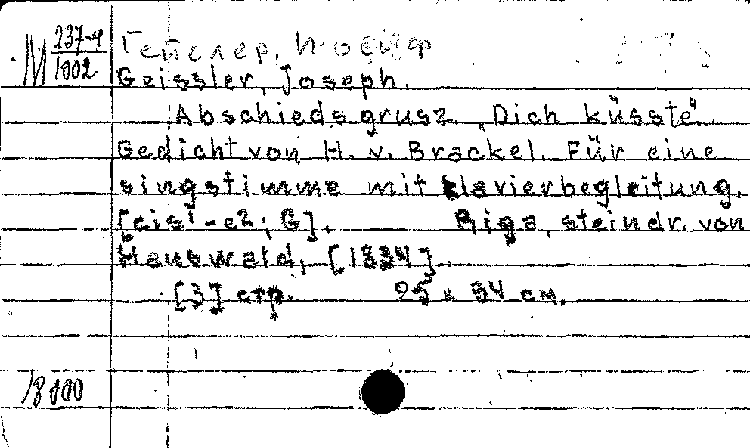 М 237-4/1002
Гейслер, Иосиф
Geissler, Joseph.
Abschiedsgrusz. "Dich küsste"
Gedicht von H. v. Brackel. Für eine
singstimme mit klavierbegleitung.
[cis1-e2; G]. Riga, steindr. von
Hauswald,
[3] стр. 25 x 34 см.